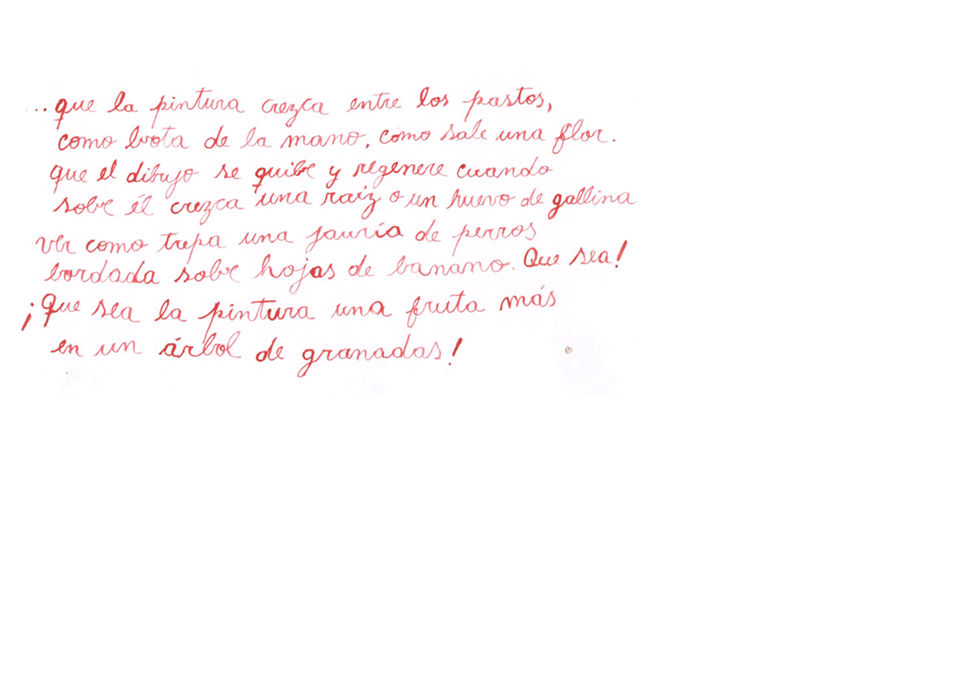 ... que la pintura crezca entre los pastos,
como brota de la mano, como sale una flor.
que el dibujo se quibre y regenere cuando
sobre él crezca una raíz o un huevo de gallina
ver como trepa una jauría de perros
bordada sobre hojas de banano. Que sea!
¡Que sea la pintura una fruta más
en un árbol de granadas!